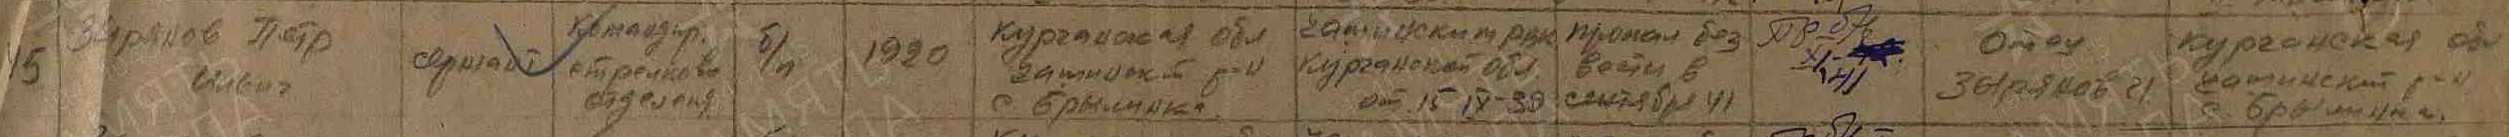 15
Зырянов Петр
Ильич
сержант
Командир.
стрелково
отделения
б/п
1920
Курганская обл
Чашинский р-н
с Брылинка.
Чашинским рвк
Курганской обл
от 15 IX-39
пропал без
вести в
сентябре 41
Отец
Зырянов И.
Курганская обл
Чашинский р-н
с. Брылинка.